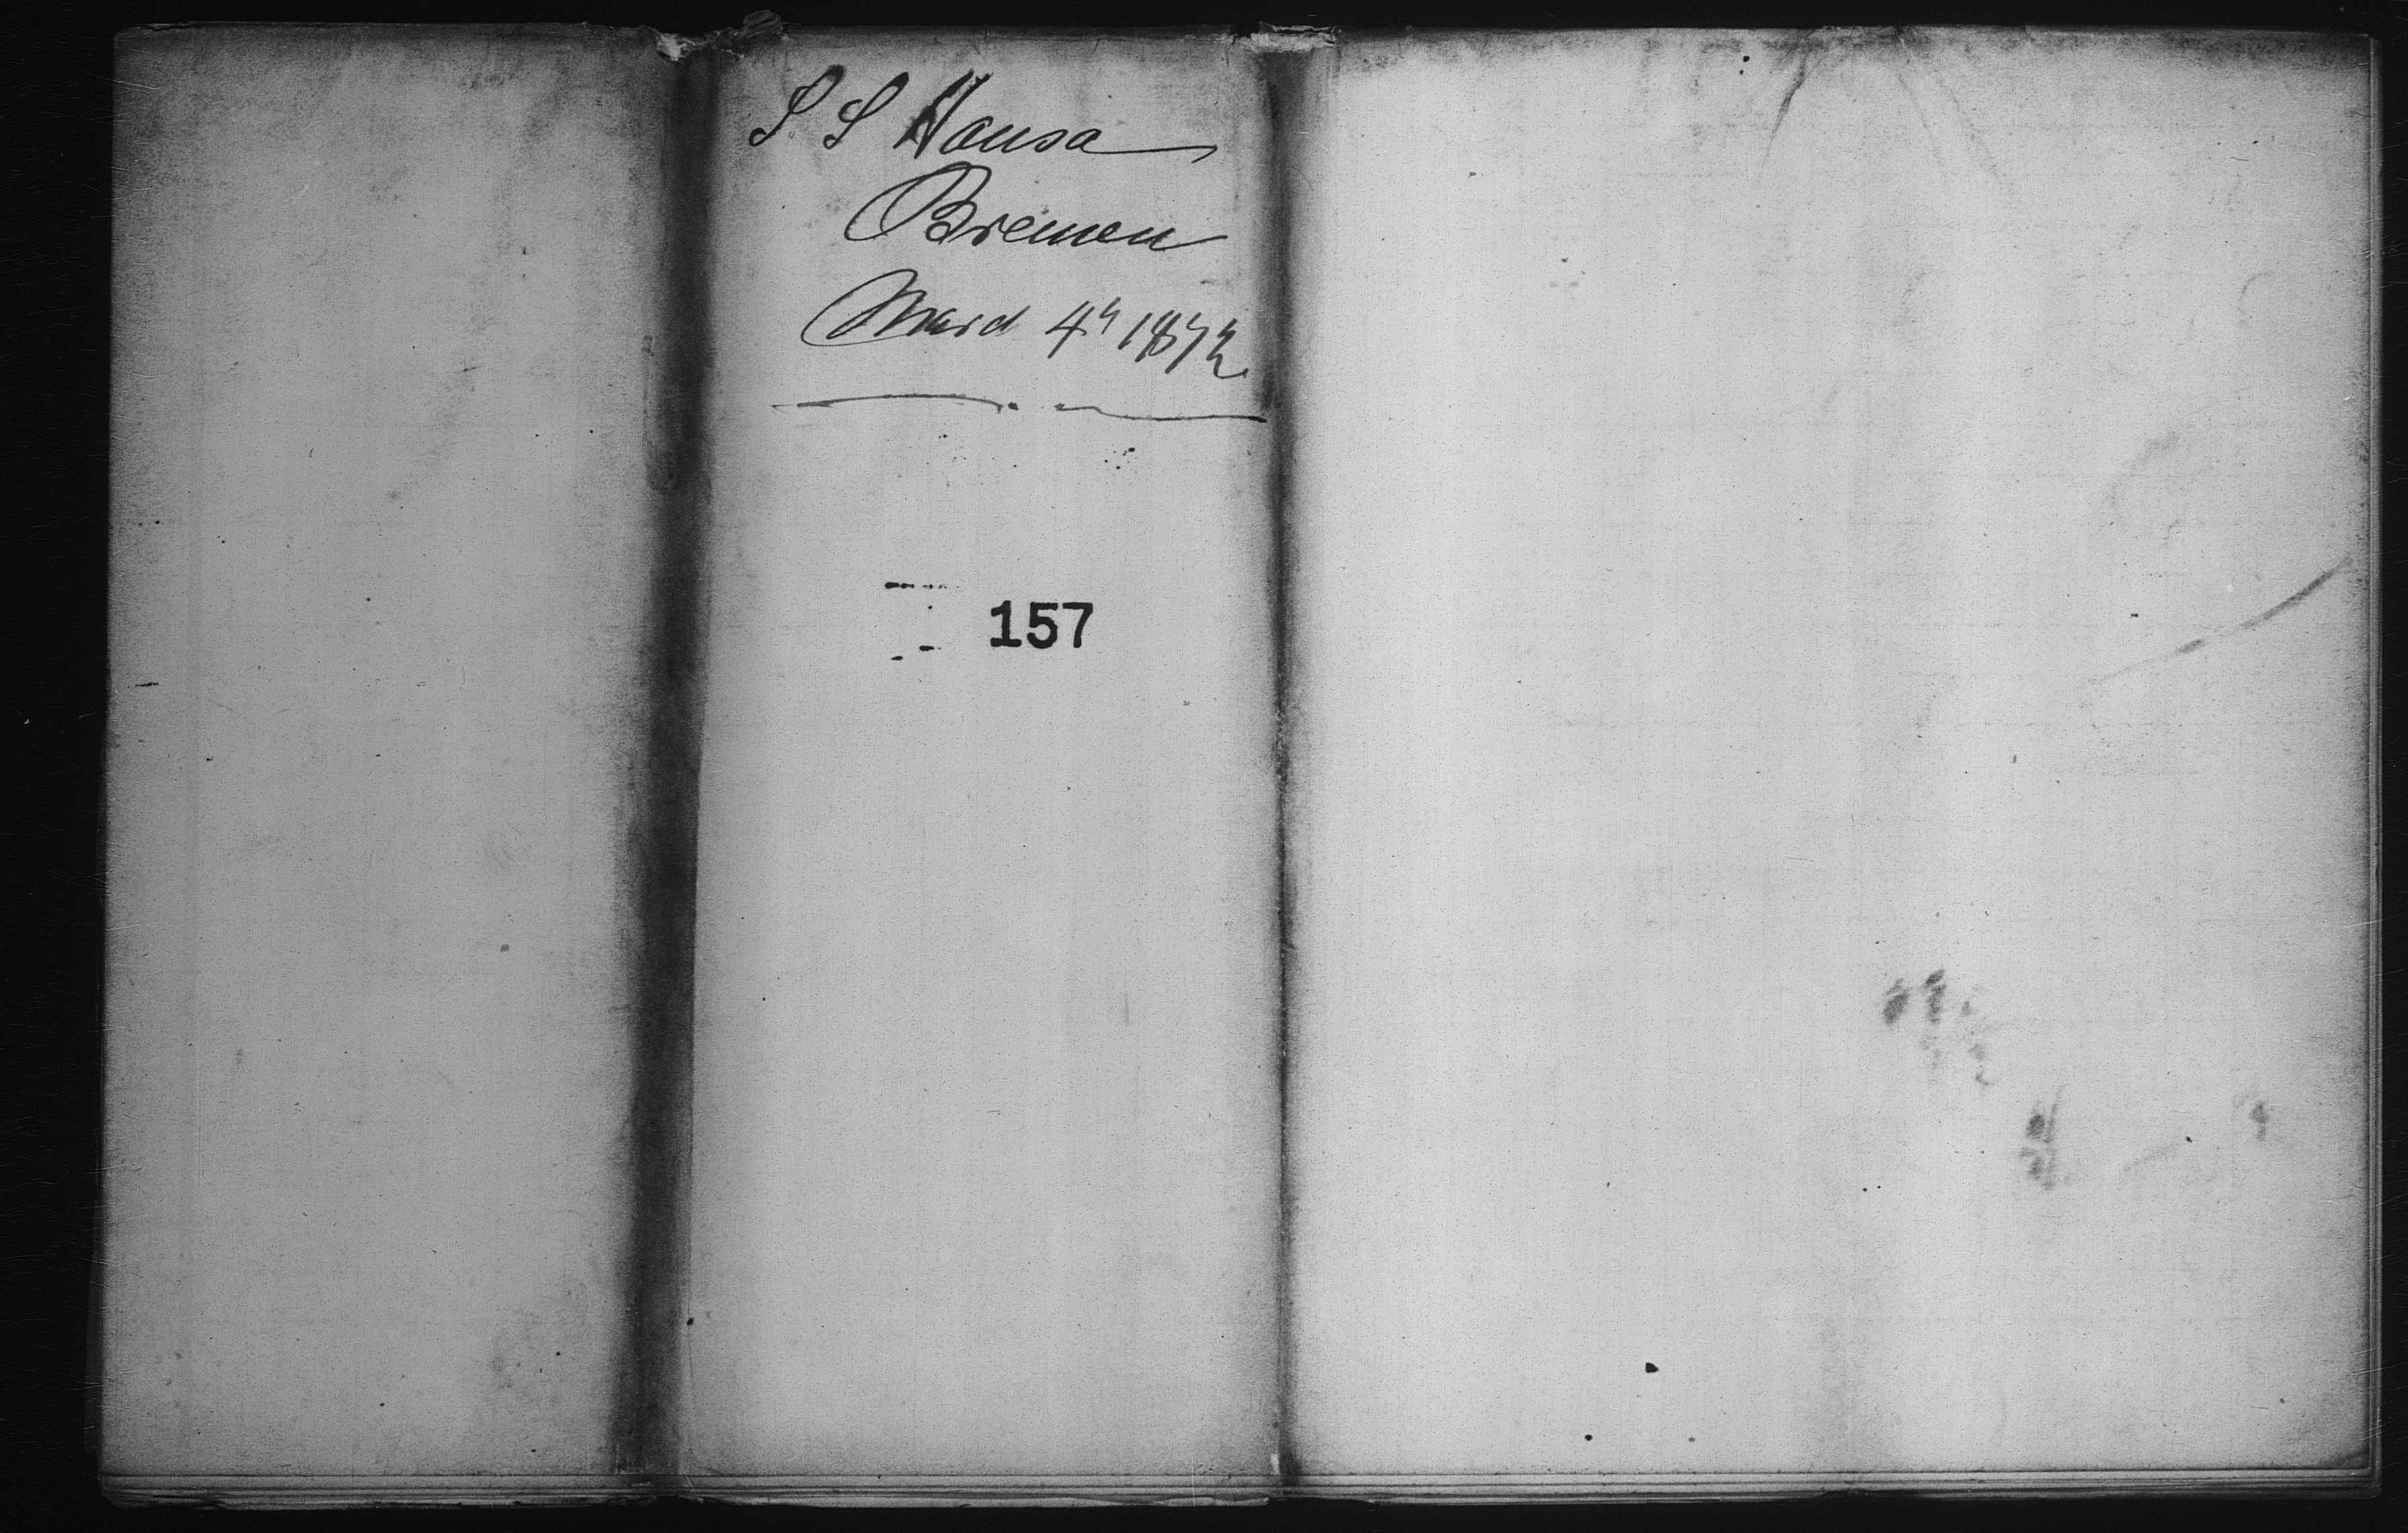 S. S Hansa
Bremen
March 4th 1872
157